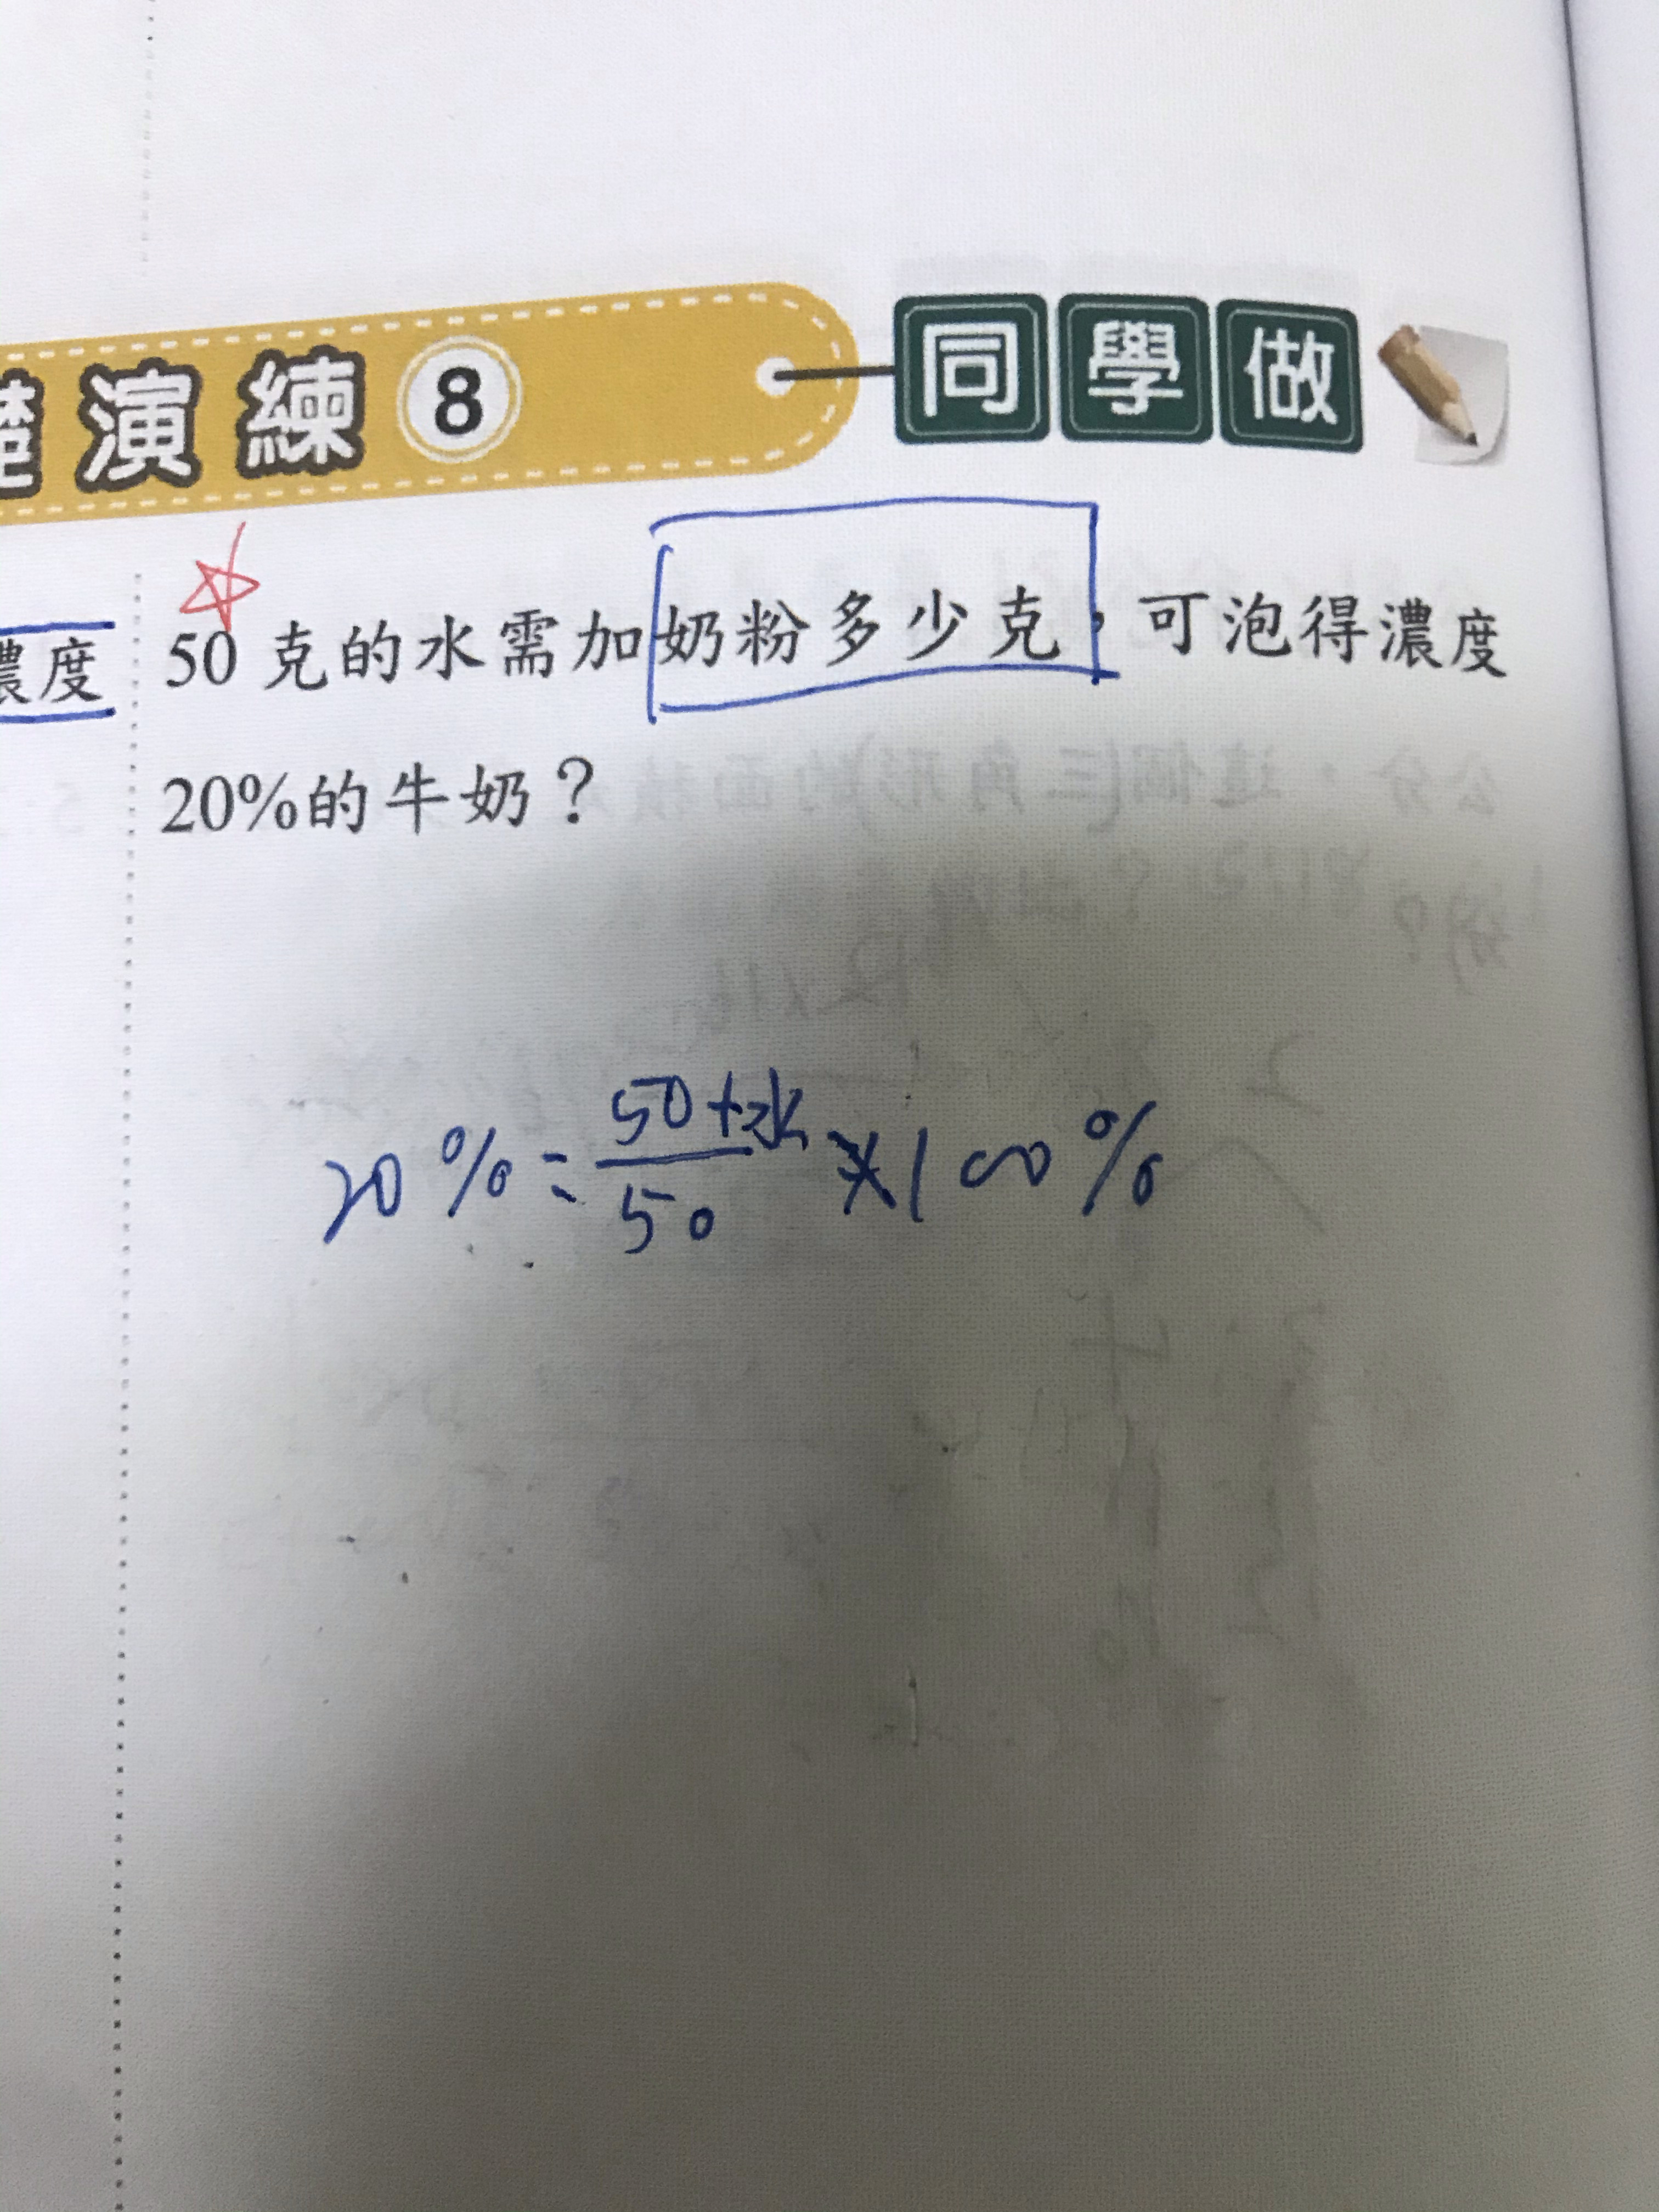 演練8 同學做
濃度
50克的水需加奶粉多少克，可泡得濃度
20%的牛奶？
20%=50+水/50×100%